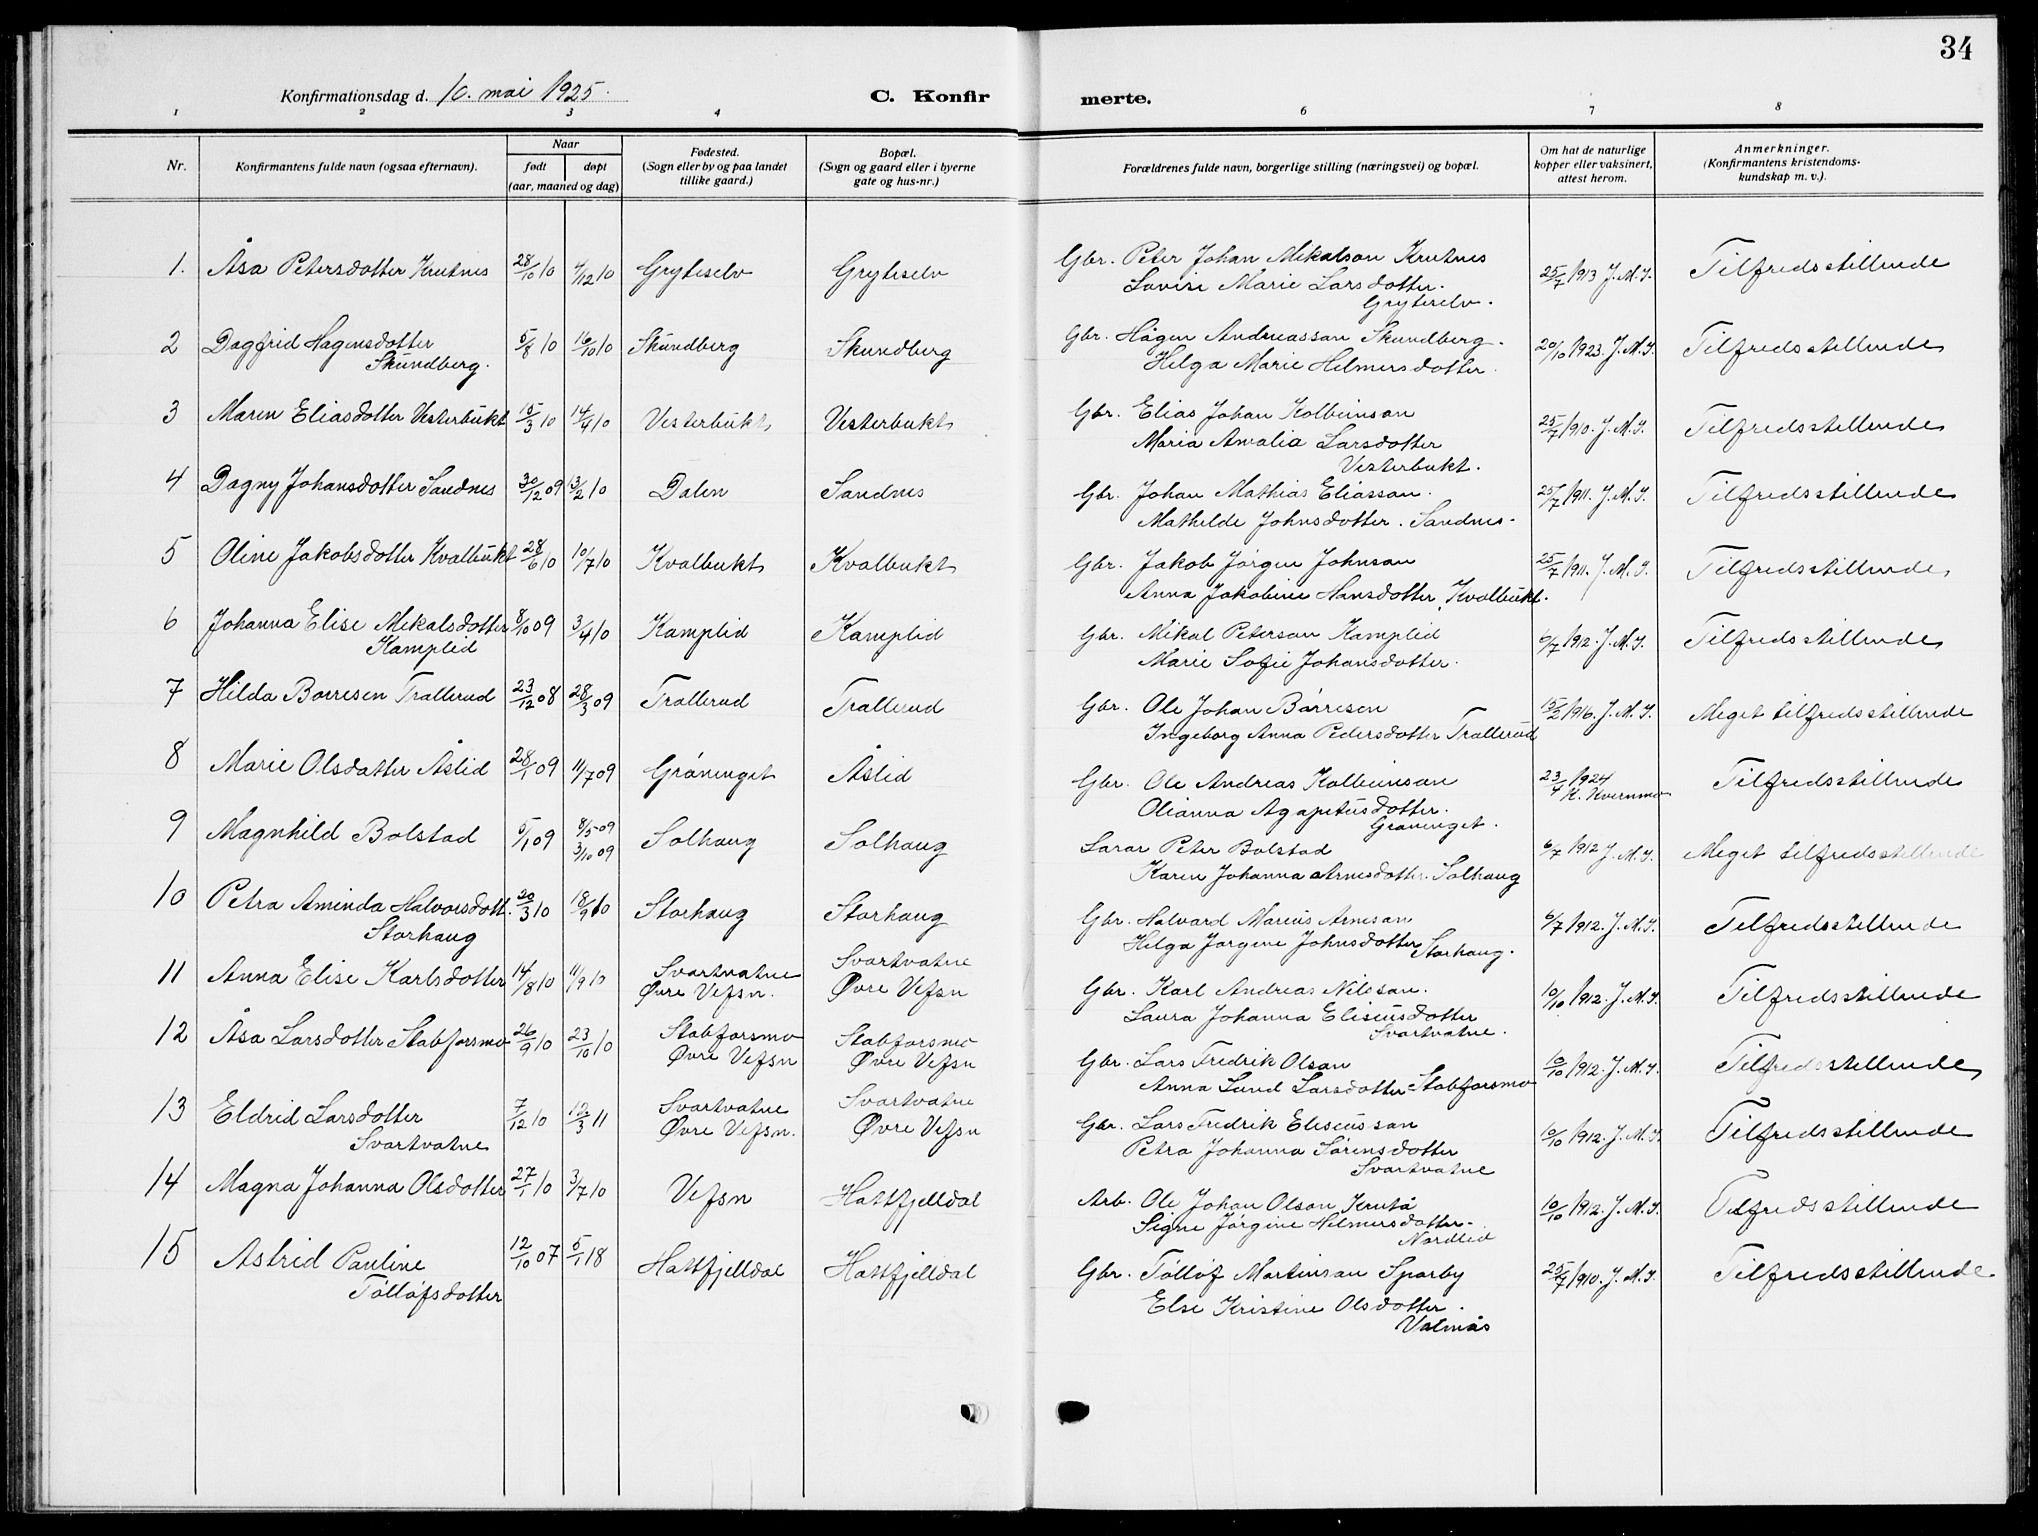 34
Konfirmationsdag d. 10. mai 1925.
C. Konfir merte.
1 2 3 4 6 7 8
Nr. Konfirmantens fulde navn (ogsaa efternavn). Naar født døpt (aar, maaned og dag) Fødested. (Sogn eller by og paa landet tillike gaard.) Bopæl. (Sogn og gaard eller i byerne gate og hus-nr.) Forældrenes fulde navn, borgerlige stilling (næringsvei) og bopæl. Om hat de naturlige kopper eller vaksinert, attest herom. Anmerkninger. (Konfirmantens kristendoms-kundskap m. v.).
1. Åsa Petersdotter Krutnes 28/10 10 4/12 10 Gryteselv Gryteselv Gbr. Peter Johan Mikalson Krutnes 25/7 1913 J. M. S. Tilfredsstillende
Lovise Marie Larsdotter.
Gryteselv.
2 Dagfrid Hagensdotter 5/8 10 16/10 10 Skundberg Skundberg Gbr. Hågen Andreasson Skundberg. 20/10 1923. J. M. S. Tilfredsstillende
Skundberg. Helga Marie Helmersdotter.
3 Maren Eliasdotter Vesterbukt 15/3 10 14/4 10 Vesterbukt Vesterbukt Gbr. Elias Johan Kolbeinson 25/7 1910. J. M. S. Tilfredsstillende
Maria Amalia Larsdotter
Vesterbukt.
4 Dagny Johansdotter Sandnes 30/12 09 13/2 10 Dalen Sandnes Gbr. Johan Mathias Eliasson. 25/7 1911. J. M. S. Tilfredsstillende
Mathilde Johnsdotter. Sandnes.
5 Oline Jakobsdotter Kvalbukt 28/6 10 10/7 10 Kvalbukt Kvalbukt Gbr. Jakob Jørgen Johnson 25/7 1911. J. M. S. Tilfredsstillende
Anna Jakobine Hansdotter, Kvalbukt.
6 Johanna Elise Mikalsdotter 8/10 09 3/4 10 Kamplid Kamplid Gbr. Mikal Peterson Kamplid 6/7 1912. J. M. S. Tilfredsstillende
Kamplid Marie Sofie Johansdotter.
7 Hilda Børresen Trallerud 23/12 08 28/3 09 Trallerud Trallerud Gbr. Ole Johan Børresen 15/2 1916. J. M. S. Meget tilfredsstillende
Ingeborg Anna Pedersdotter Trallerud
8 Marie Olsdatter Åslid 28/1 09 11/7 09 Grøninget Åslid Gbr. Ole Andreas Kolbeinson 23/4 1924 K. Kvernmo Tilfredsstillende
Olianna Agapetusdotter.
Grøninget.
9 Magnhild Bolstad 5/1 09 8/5 09 3/10 09 Solhaug Solhaug Lærar Peter Bolstad 6/7 1912 J. M. S. Meget tilfredsstillende
Karen Johanna Arnesdotter. Solhaug
10 Petra Aminda Halvorsdott. 20/3 10 18/9 10 Storhaug Storhaug Gbr. Halvard Marius Arneson 6/7 1912. J. M. S. Tilfredsstillende
Storhaug Helga Jørgine Johnsdotter Storhaug.
11 Anna Elise Karlsdotter 14/8 10 11/9 10 Svartvatne Svartvatne Gbr. Karl Andreas Nilsson. 10/10 1912. J. M. S. Tilfredsstillende
Øvre Vefsn. Øvre Vefsn Laura Johanna Eliseusdotter
Svartvatne.
12 Åsa Larsdotter Stabforsmo 26/9 10 23/10 10 Stabforsmo Stabforsmo Gbr. Lars Fredrik Olson 10/10 1912. J. M. S. Tilfredsstillende
Øvre Vefsn Øvre Vefsn Anna Lund Larsdotter Stabforsmo
13 Eldrid Larsdotter 7/12 10 12/3 11 Svartvatne Svartvatne Gbr. Lars Fredrik Eliseusson 10/10 1912. J. M. S. Tilfredsstillende
Svartvatne Øvre Vefsn. Øvre Vefsn Petra Johanna Sørensdotter
Svartvatne
14 Magna Johanna Olsdotter 27/1 10 3/7 10 Vefsn Hattfjelldal Arb. Ole Johan Olson Krutå 10/10 1912. J. M. S. Tilfredsstillende
Signe Jørgine Helmersdotter.
Nordlid
15 Astrid Pauline 12/10 07 5/1 18 Hattfjelldal Hattfjelldal Gbr. Tølløf Martinson Sparby 25/7 1910. J. M. S. Tilfredsstillende
Tølløfsdotter Else Kristine Olsdotter.
Valmås